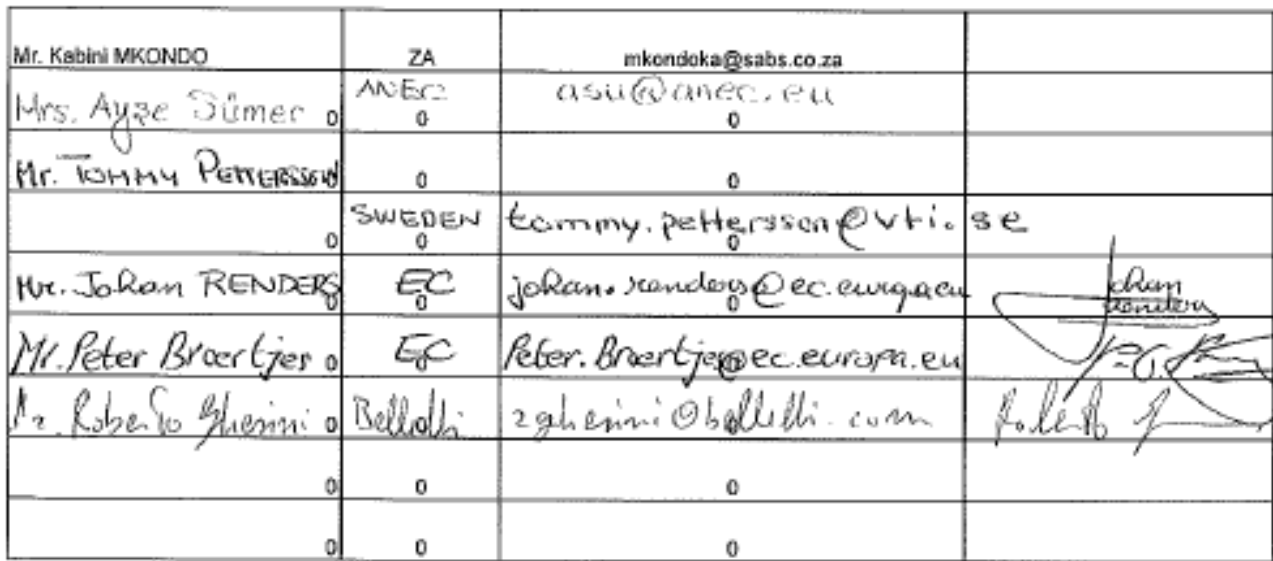 Mr. Kabini MKONDO ZA mkondoka@sabs.co.za
Mrs. Ayşe Sümer 0 ANEC 0 asu@anec.eu 0
Mr. TOMMY PETTERSSON 0 0
0 SWEDEN 0 tommy.pettersson@vti.se 0
Mr. Johan RENDERS 0 EC 0 johan.renders@ec.europa.eu 0 Johan Renders
Mr. Peter Broertjes 0 EC 0 Peter.Broertjes@ec.europa.eu 0
Mr. Roberto Gherini 0 Bellelli 0 0
0 0 0
0 0 0